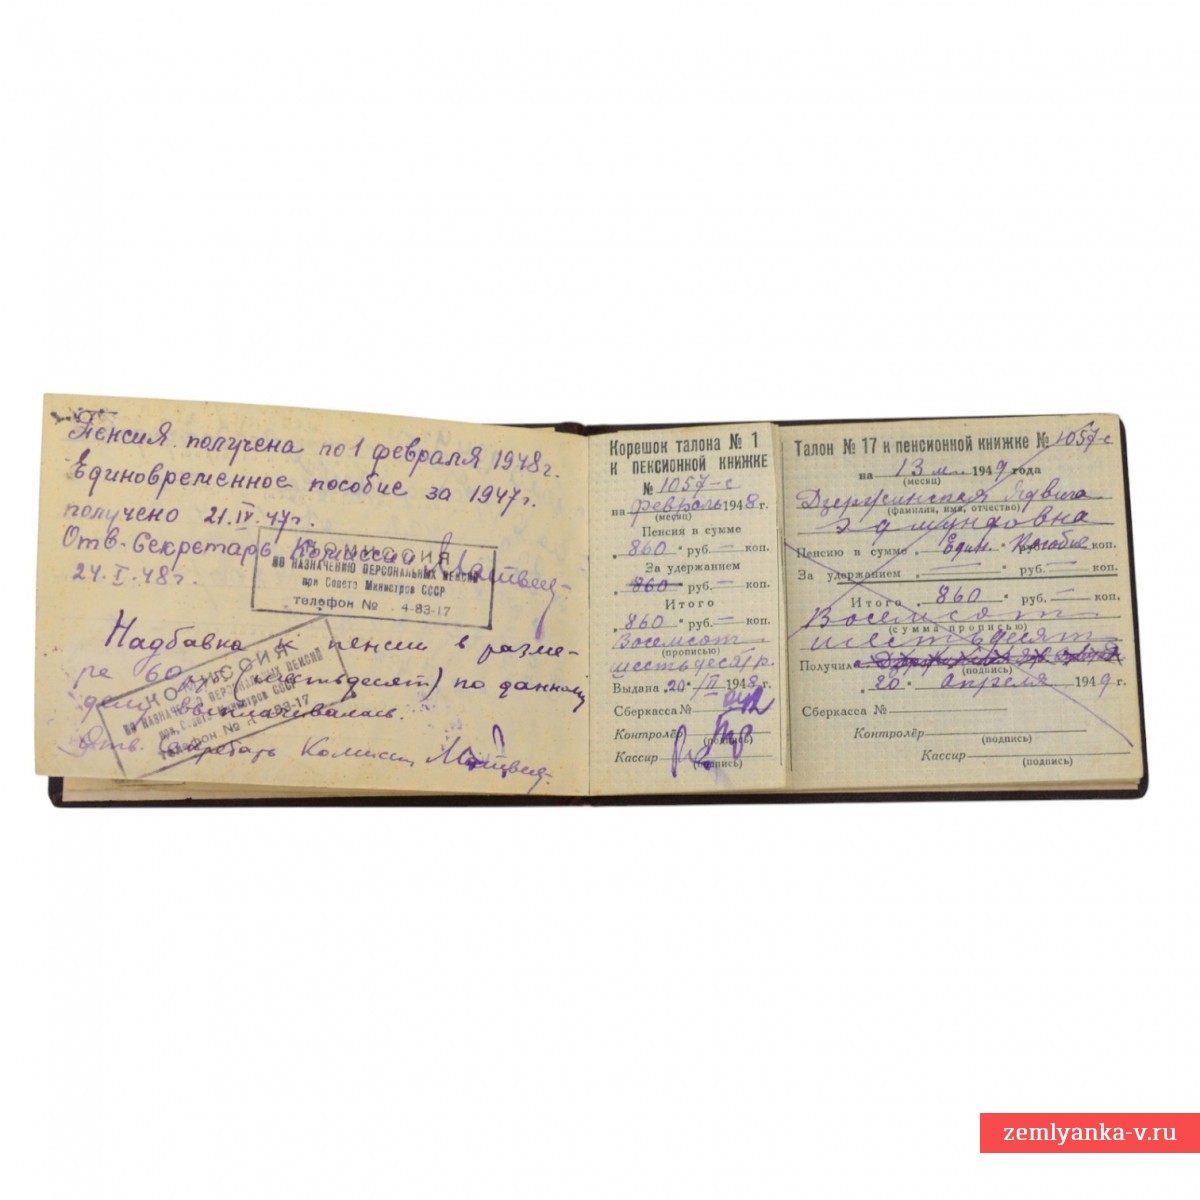 Пенсия получена по 1 февраля 1948 г.
Единовременное пособие за 1947 г.
получено 21.IV.47г.
Отв. Секретарь Комиссии
24.I.48г.
КОМИССИЯ
ПО НАЗНАЧЕНИЮ ПЕРСОНАЛЬНЫХ ПЕНСИЙ
при Совете Министров СССР
телефон № 4-83-17
Надбавка к пенсии в разме-
ре 60 руб (шестьдесят) по данному
выплачивалась.
Отв. Секретарь Комиссии
КОМИССИЯ
ПО НАЗНАЧЕНИЮ ПЕРСОНАЛЬНЫХ ПЕНСИЙ
при Совете Министров СССР
телефон № 4-83-17
Корешок талона № 1
к пенсионной книжке
№ 1057-с
на февраль 1948 г.
(месяц)
Пенсия в сумме
„860 " руб. — коп.
За удержанием
„860 " руб. — коп.
Итого
„860 " руб. — коп.
Восемсот
(прописью)
шестьдесят р.
Выдана „20" II 1948 г.
Сберкасса №
Контролёр
(подпись)
Кассир
(подпись)
Талон № 17 к пенсионной книжке № 1057-с
на 13 м. 1949 года
(месяц)
Дзержинская Ядвига
(фамилия, имя, отчество)
Эдмундовна
Пенсию в сумме „ Един. " Пособие коп.
За удержанием „ — " руб. — коп.
Итого „ 860 " руб. — коп.
Восемсот
(сумма прописью)
шестьдесят
Получил
(подпись)
„ 20 " апреля 1949 г.
Сберкасса № —
Контролёр
(подпись)
Кассир
(подпись)
zemlyanka-v.ru